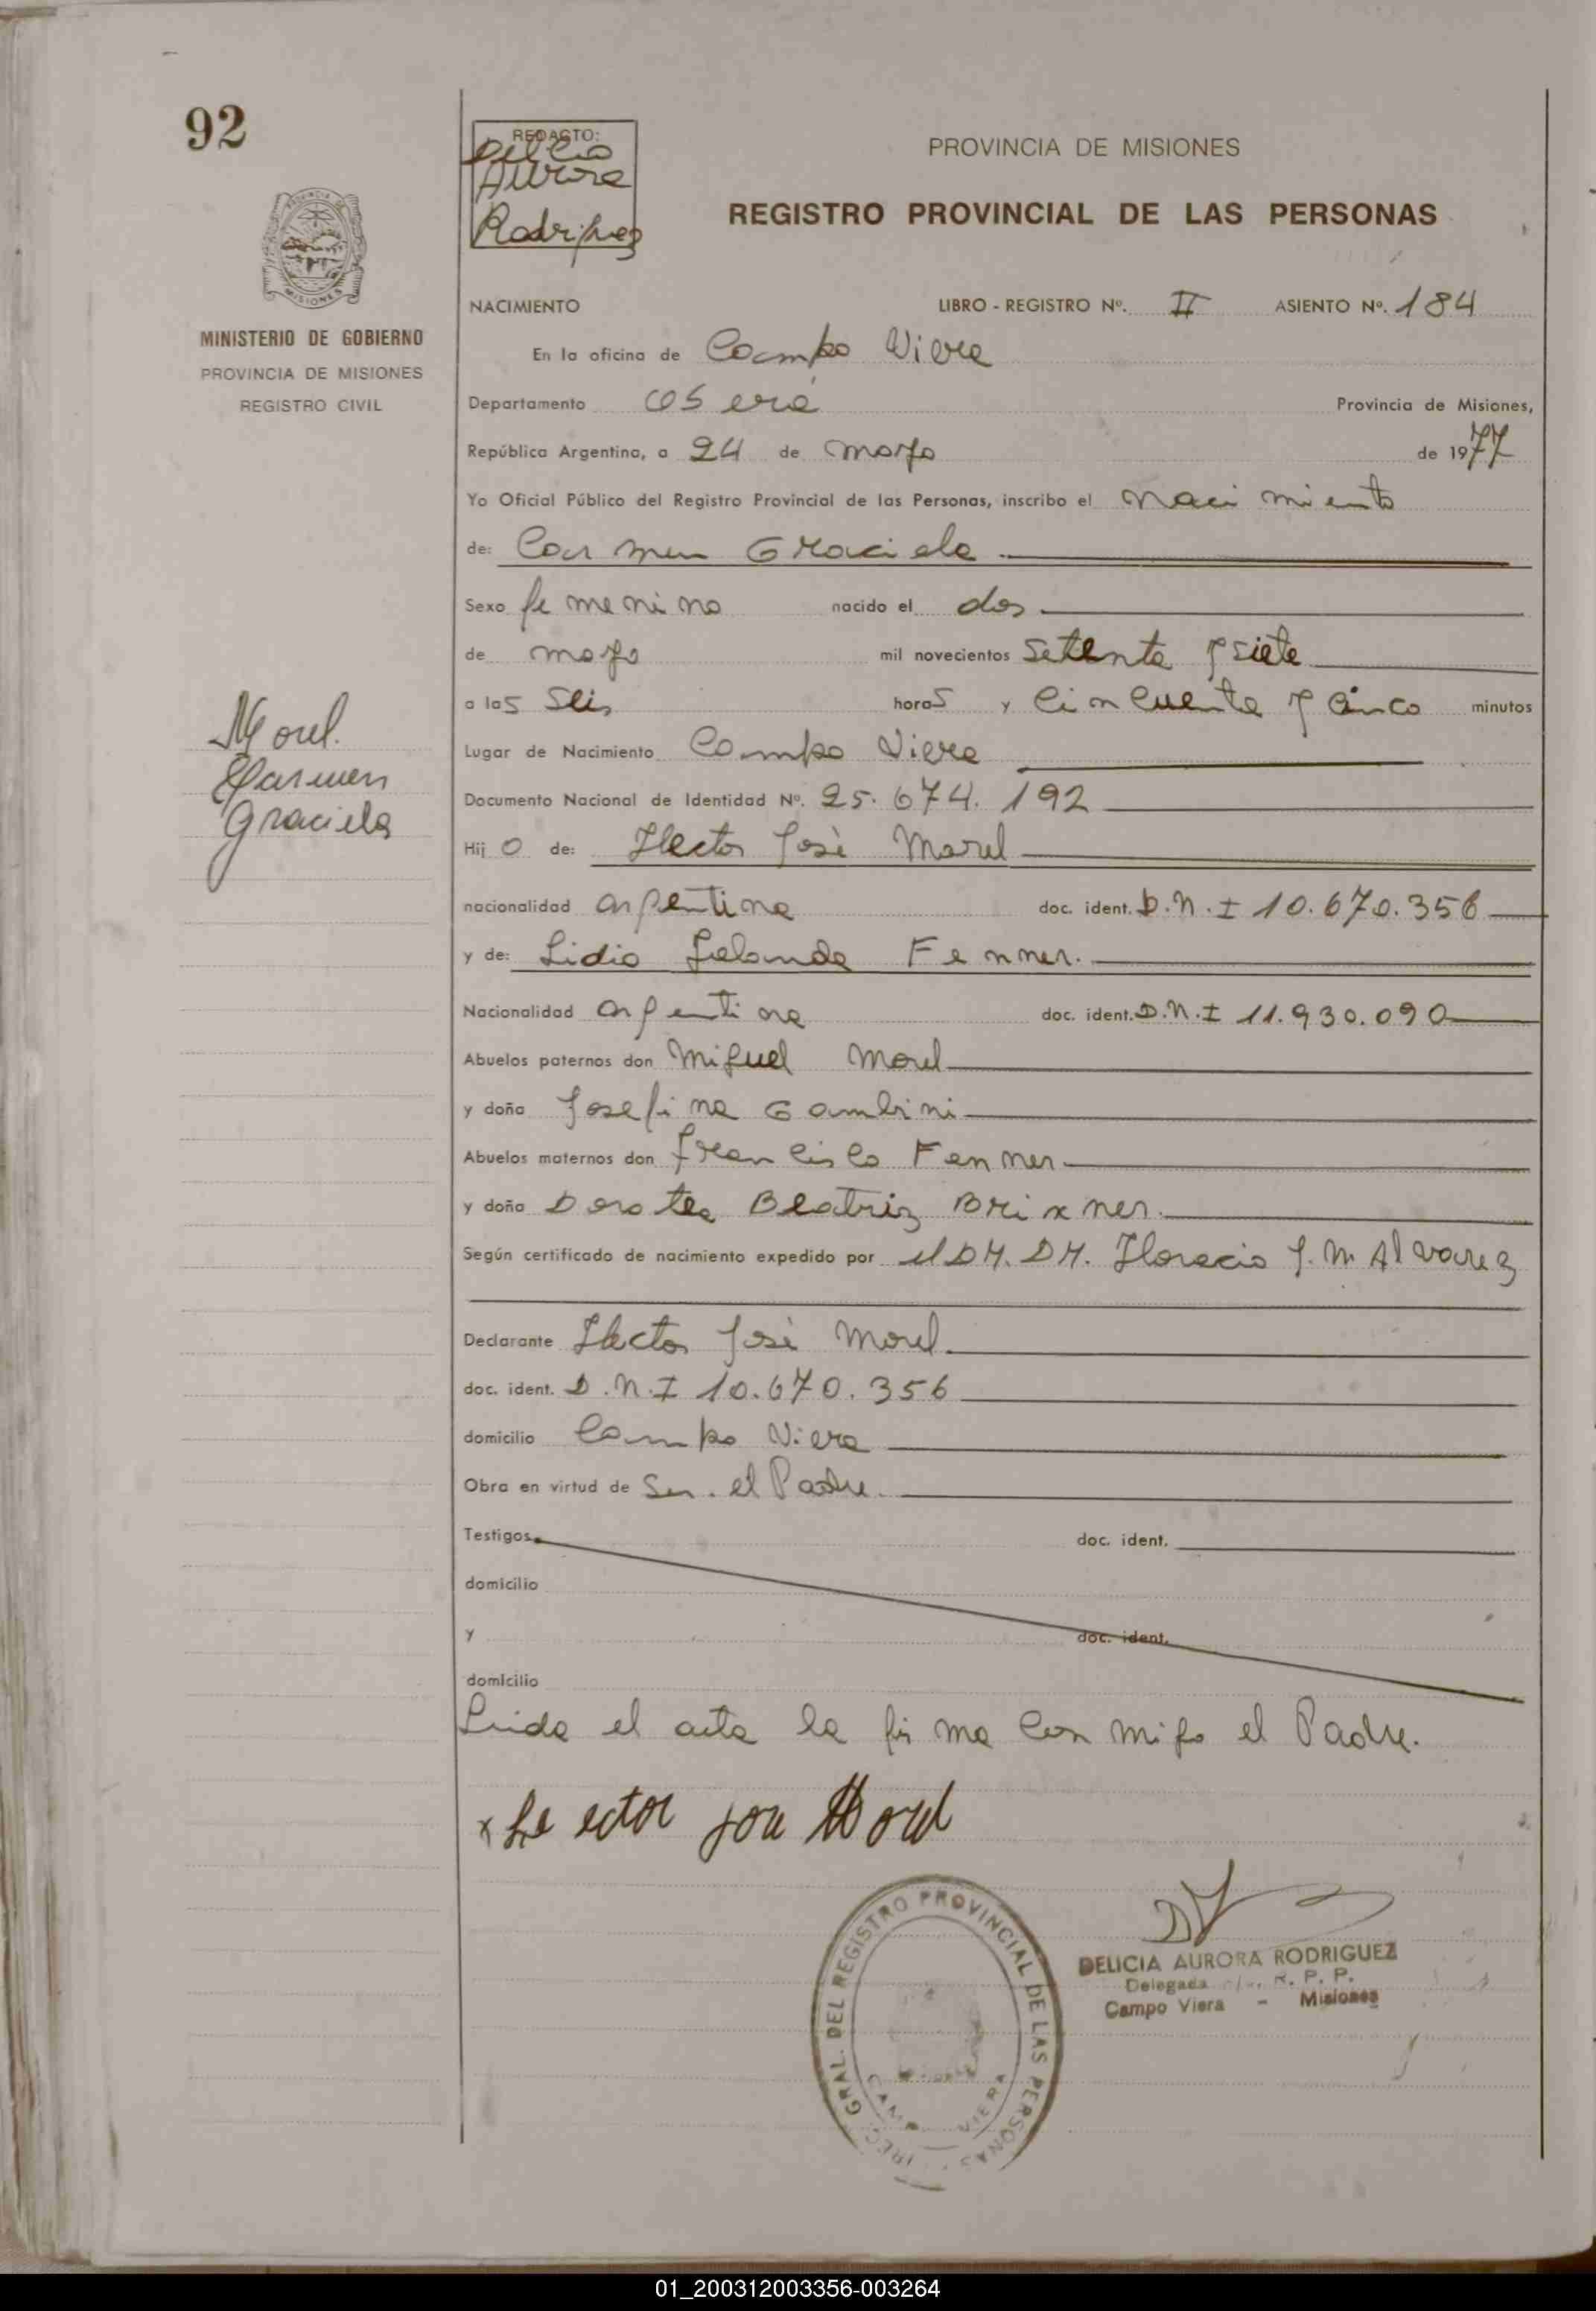 92
REDACTO:
Delicia
Aurora
Rodriguez
PROVINCIA DE MISIONES
REGISTRO PROVINCIAL DE LAS PERSONAS
PROVINCIA DE
MISIONES
MINISTERIO DE GOBIERNO
PROVINCIA DE MISIONES
REGISTRO CIVIL
NACIMIENTO LIBRO - REGISTRO Nº. II ASIENTO Nº. 184
En la oficina de Campo Viera
Departamento Provincia de Misiones,
República Argentina, a 24 de mayo de 1977
Yo Oficial Público del Registro Provincial de las Personas, inscribo el Nacimiento
de: Carmen Graciela
Sexo femenino nacido el dos
de mayo mil novecientos setenta y siete
a las seis horas y cincuenta y cinco minutos
Morel.
Carmen
Graciela
Lugar de Nacimiento Campo Viera
Documento Nacional de Identidad Nº. 25.674.192
Hijo de: Hector José Morel
nacionalidad argentina doc. ident. D.N.I 10.670.356
y de: Lidia Fenner.
Nacionalidad argentina doc. ident. D.N.I 11.930.090
Abuelos paternos don Miguel Morel
y doña Josefina Gambini
Abuelos maternos don Francisco Fenner
y doña Dorotea Beatriz Brixner.
Según certificado de nacimiento expedido por el Dr. Dr. Horacio J. M. Alvarez
Declarante Hector José Morel.
doc. ident. D.N.I 10.670.356
domicilio Campo Viera
Obra en virtud de Ser. el Padre.
Testigos doc. ident.
domicilio
y doc. ident.
domicilio
Leida el acta la firma conmigo el Padre.
x Hector José Morel
DELICIA AURORA RODRIGUEZ
Delegada R. P. P.
Campo Viera - Misiones
GRAL. DEL REGISTRO PROVINCIAL DE LAS PERSONAS
CAMPO VIERA
01_200312003356-003264